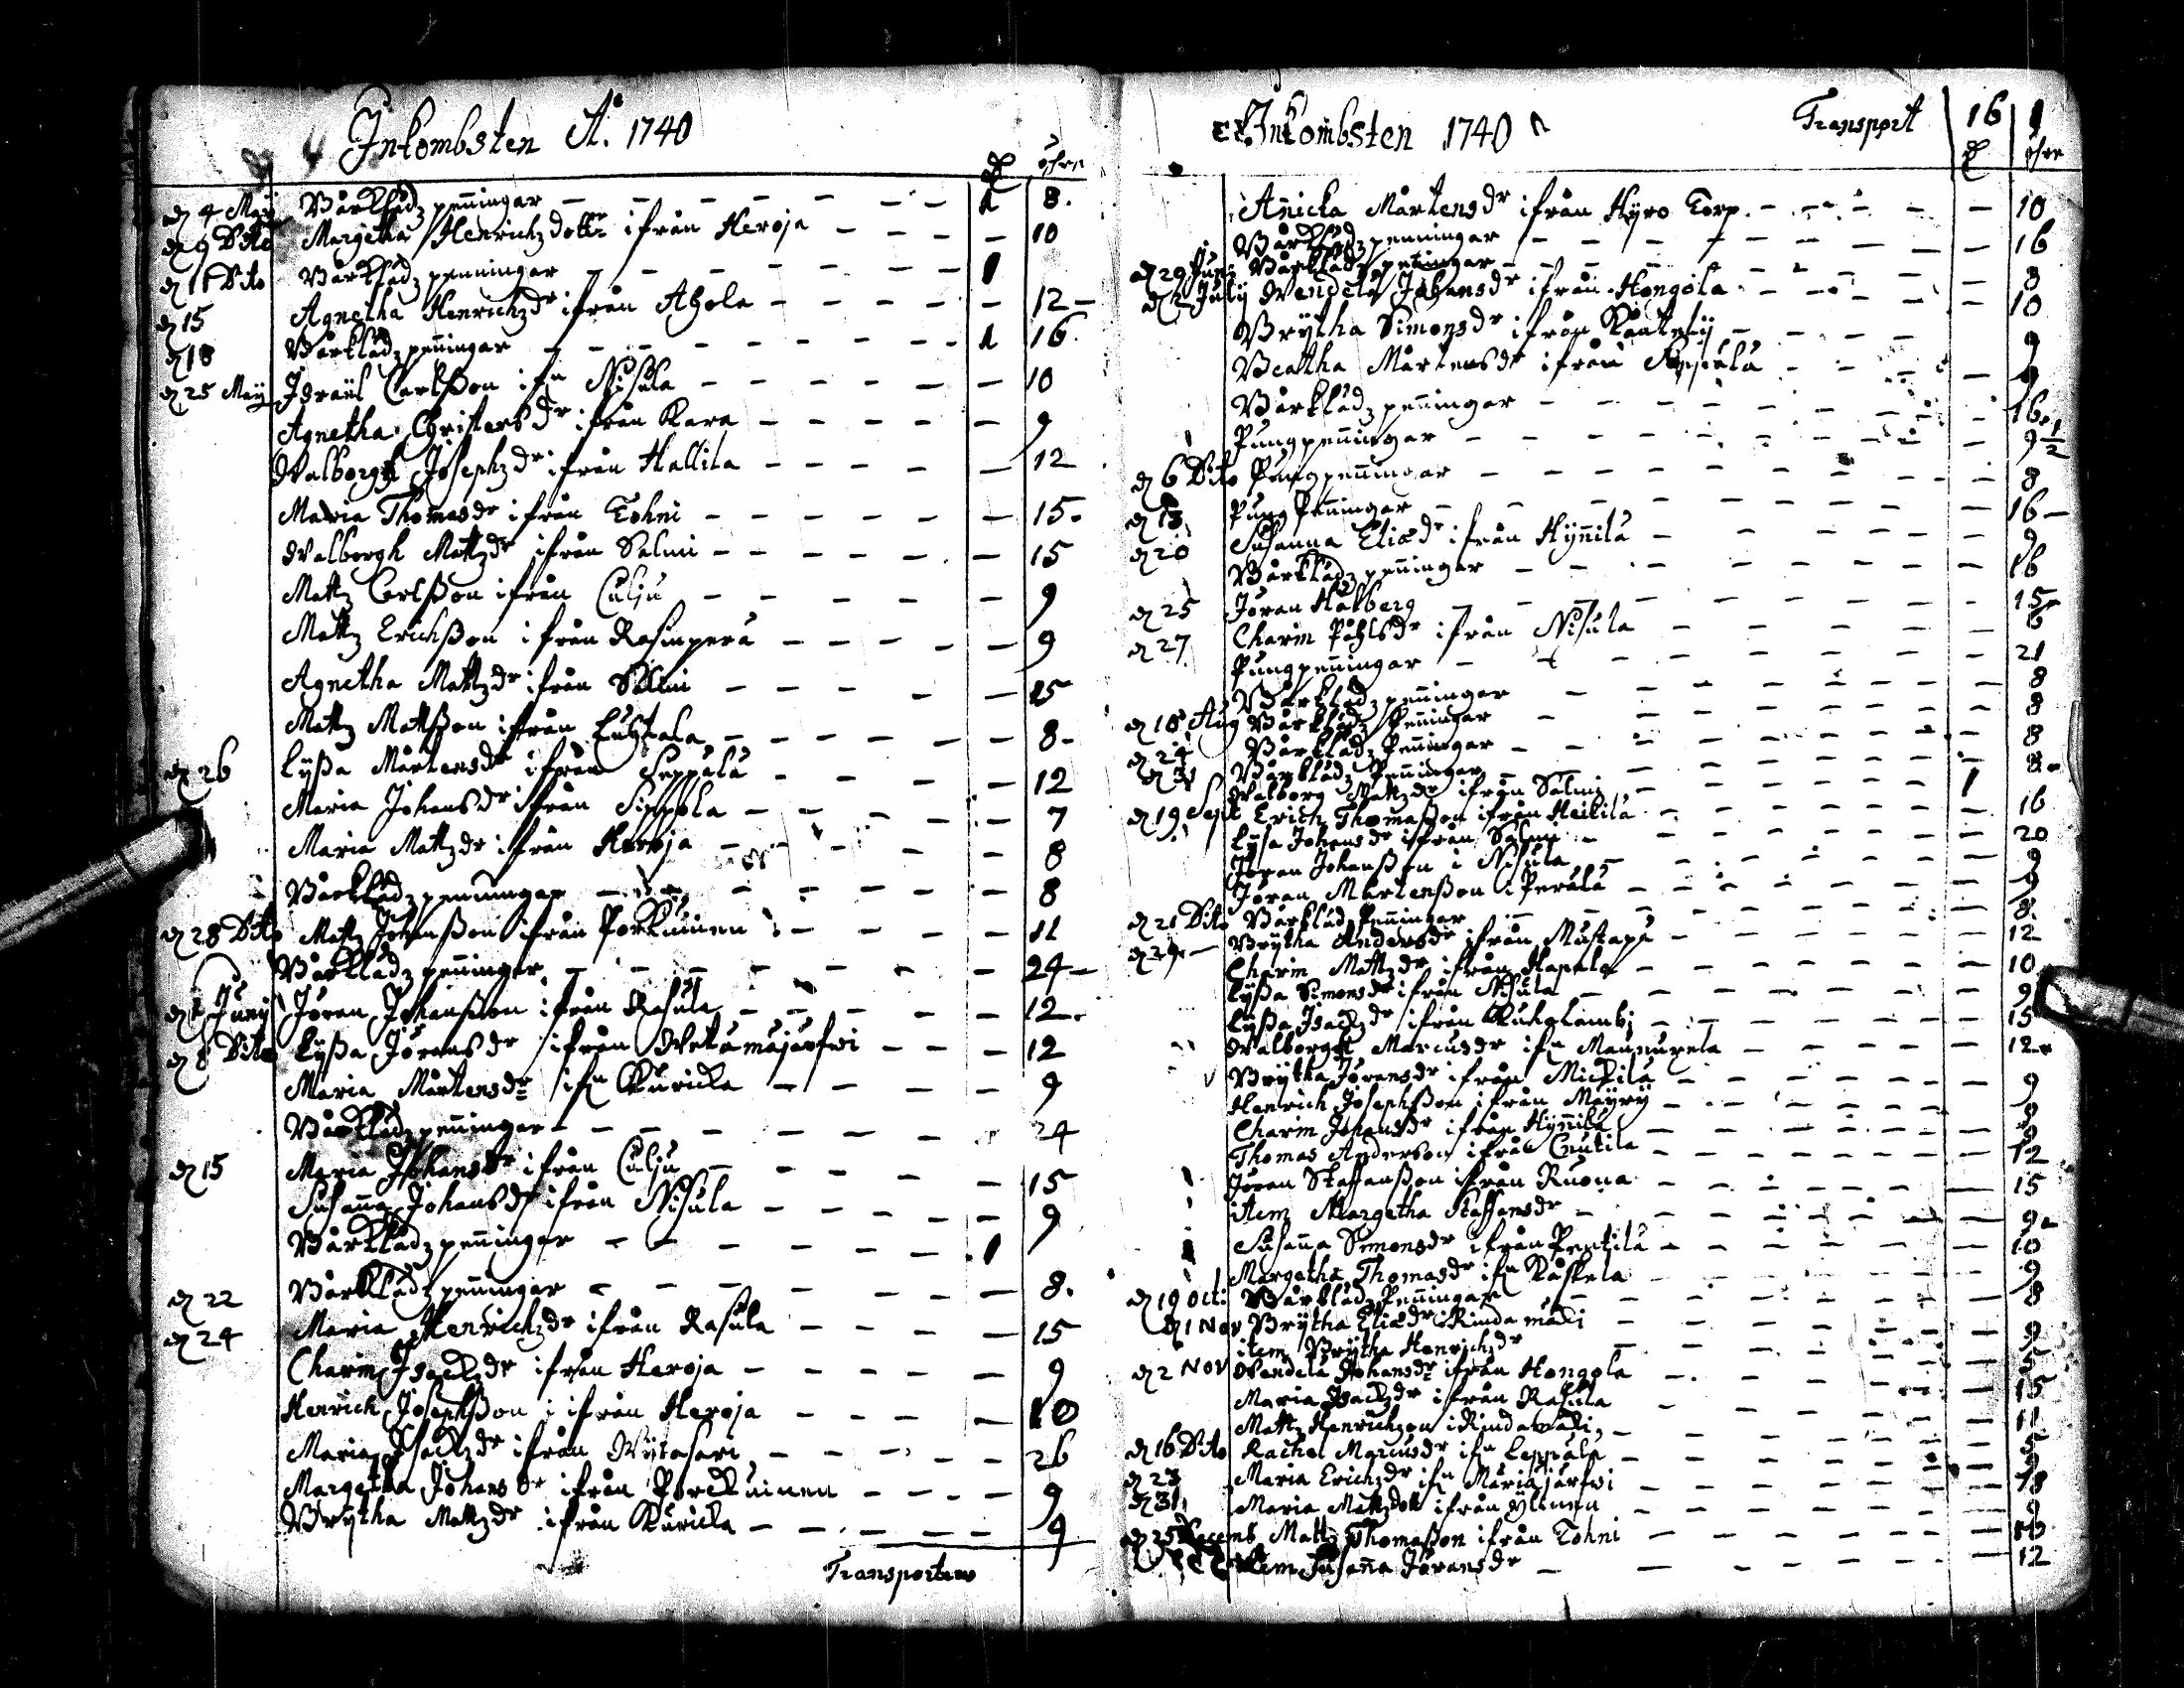 Inkombsten A:o 1740
öhre
d 4 Maij Wårklådz peñingar 1 8.
d 9 Dito Margetha Henrichzdotter ifrån Heroja 10
d 11 Dito Wårklådz penningar 1
d 15 Agnetha Henrichzdr ifrån Ahola 12
d 18 Wårklådz peñingar 1 16
d 25 Maij Israel Carlsson ifn Nisula 10
Agnetha Christersdr ifrån Kara 9
Walborgh Josephzdr ifrån Hallila 12
Maria Thomasdr ifrån Tohni 15
Walborgh Mattzdr ifrån Salmi 15
Mattz Carlsson ifrån Culju 9
Mattz Erichsson ifrån Rasinperä 9
Agnetha Mattzdr ifrån Salmi 15
Mattz Mattsson ifrån 8
d 26 Lyssa Mårtensdr ifrån Seppälä 12
Maria Johansdr ifrån Sippola 7
Maria Mattzdr ifrån Heroja 8
Wårklådz penningar 8
d 28 Dito Mattz Johansson ifrån Porkuinen 11
Wårklådz peningar 24
d 1 Junij Jöran Johansson ifrån Rasula 12
d 8 Dito Lyssa Jöransdr ifrån 12
Maria Mårtensdr ifn Kuricka 9
Wårklådz peñingar 24
d 15 Maria Johansdr ifrån Culju 15
Susaña Johansdr ifrån Nisula 9
Wårklådz peñingar 1
d 22 Wårklådz peñingar 8.
d 24 Maria Henrichzdr ifrån Rasula 15
Charin Isackzdr ifrån Heroja 9
Henrich Josephsson ifrån Heroja 10
Maria Isackzdr ifrån Wijtasari 26
Margetha Johansdr ifrån Porckuinen 9
Brytha Mattzdr ifrån Kuricka 9
Transporteras
Inkombsten 1740 Transport 16 1
öhre
Anicka Mårtensdr ifrån Hyro Torp 10
Wårklådz penningar 16
d 29 Junij Wårklådz peningar 8
d 2 July Wendela Johansdr ifrån Hongola 10
Brytha Simonsdr ifrån 9
Beatha Mårtensdr ifrån Seppälä 9
Wårklådz peñingar 16
Pungpeñingar 9 1/2
d 6 Dito Pungpeñingar 8
d 13 Pung Peñingar 16
d 20 Susanna Eliædr ifrån Hynnilä 9
Wårklådz peñingar 16
d 25 Jöran Halberg 15
d 27 Charin Påhlsdr ifrån Nisula 6
Pungpeñingar 21
Wårklådz peñingar 8
d 10 Aug Wårklådz Peñingar 8
d 24 Wårklådz Peñingar 8
d 31 Wårklådz Peñingar 8
Walborg Mattzdr ifrån Salmi 1
d 19 Sept Erich Thomasson ifrån Heikilä 16
Lysa Johansdr ifrån Salmi 20
Jöran Johansson i Nisula 9
Jöran Mårtensson i Perälä 9
d 21 Dito Wårklådz Peñingar 8
d 29 Brytha Andersdr ifrån Mustapä 12
Charin Mattzdr ifrån Hapala 10
Lyssa Simonsdr ifrån Nisula 9
Lyssa Isackzdr ifrån 15
Walborgh Marcusdr ifn 12
Brytha Jöransdr ifrån Mickilä 9
Henrich Josephsson ifrån Mäyry 9
Charin Johansdr ifrån Hynnilä 9
Thomas Andersson ifrån Cnutila 12
Jöran Staffansson ifrån Ruona 15
item Margetha Staffansdr 9
Susaña Simonsdr ifrån Pentilä 10
Margetha Thomasdr ifn Kåskela 9
d 19 Oct: Wårklådz Peñingar 8
d 1 Nov Brytha Eliædr i Rindamäki 9
item Brytha Henrichzdr
d 2 Nov Wendela Johansdr ifrån Hongola
Maria Isackzdr ifrån Rasula 15
Mattz Henrichzon i Rindamäki 11
d 16 Dito Rachel Marcusdr ifn Leppälä
d 23 Maria Erichzdr ifn Mariajärfwi
d 31 Maria Mattzdott ifrån Ylinen 9
d 25 Decemb Mattz Thomasson ifrån Tohni
item Susaña Jöransdr 12